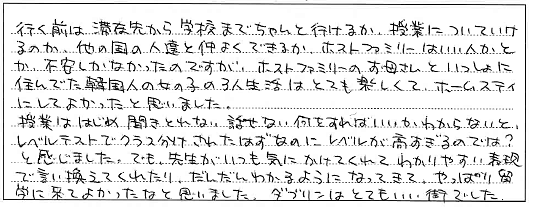 行く前は、滞在先から学校までちゃんと行けるか、授業についていけ
るのか、他の国の人達と仲よくできるか、ホストファミリーはいい人かと
か、不安しかなかったのですが、ホストファミリーのお母さんといっしょに
住んでた韓国人の女の子の3人生活はとても楽しくて、ホームステイ
にしてよかったと思いました。
授業ははじめ、聞きとれない、話せない、何をすればいいかわからないと、
レベルテストでクラス分けされたはずなのにレベルが高すぎるのでは？
と感じました。でも、先生がいつも気にかけてくれてわかりやすい表現
で言い換えてくれたり、だんだんわかるようになってきて、やっぱり留
学に来てよかったなと思いました。ダブリンはとてもいい街でした。